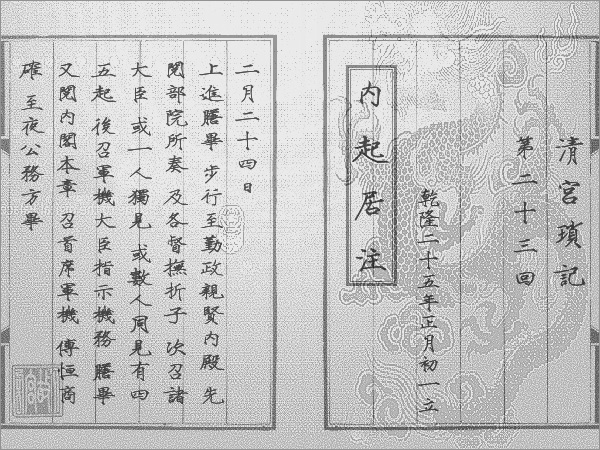 清宮瑣記
第二十三回
乾隆二十五年正月初一立
內起居注
二月二十四日
上進膳畢 步行至勤政親賢內殿 先
閱部院所奏 及各督撫折子 次召諸
大臣 或一人獨見 或數人同見有四
五起 後召軍機大臣指示機務 膳畢
又閱內閣本章 召首席軍機 傅恒商
確 至夜公務方畢